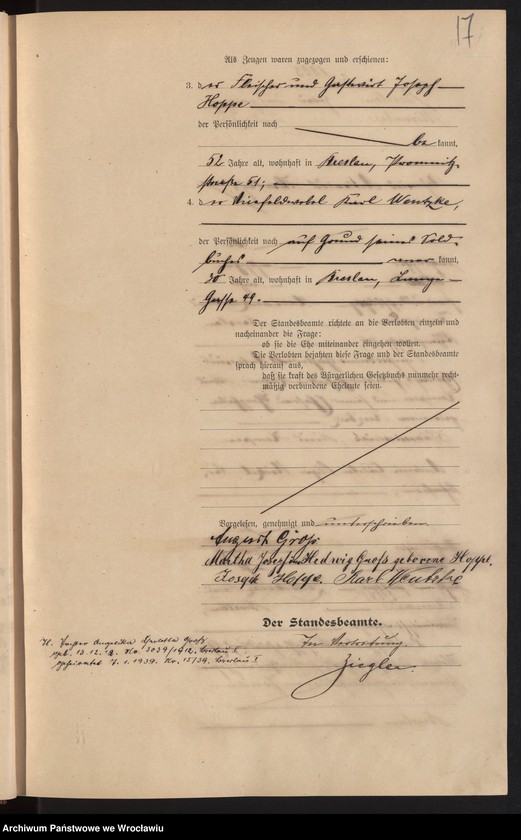 17
Als Zeugen waren zugezogen und erschienen:
3. der Fleischer und Gastwirt Joseph
Hoppe
der Persönlichkeit nach
be kannt,
52 Jahre alt, wohnhaft in Breslau, Promnitz-
straße 51;
4. der Vizefeldwebel Karl Wentzke,
der Persönlichkeit nach auf Grund seines Sold-
buches aner kannt,
30 Jahre alt, wohnhaft in Breslau, Lange-
Gasse 49.
Der Standesbeamte richtete an die Verlobten einzeln und
nacheinander die Frage:
ob sie die Ehe miteinander eingehen wollen.
Die Verlobten bejahten diese Frage und der Standesbeamte
sprach hierauf aus,
daß sie kraft des Bürgerlichen Gesetzbuchs nunmehr recht-
mäßig verbundene Eheleute seien.
Vorgelesen, genehmigt und unterschrieben.
August Groß
Martha Josefine Hedwig Groß geborene Hoppe.
Joseph Hoppe. Karl Wentzke
Der Standesbeamte.
In Vertretung.
Ziegler.
Angelika Groß
geb. 13.12.12. No. 3039/1912. Breslau I.
geheiratet 7.1.1939. Nr. 15/39. Breslau I
Archiwum Państwowe we Wrocławiu